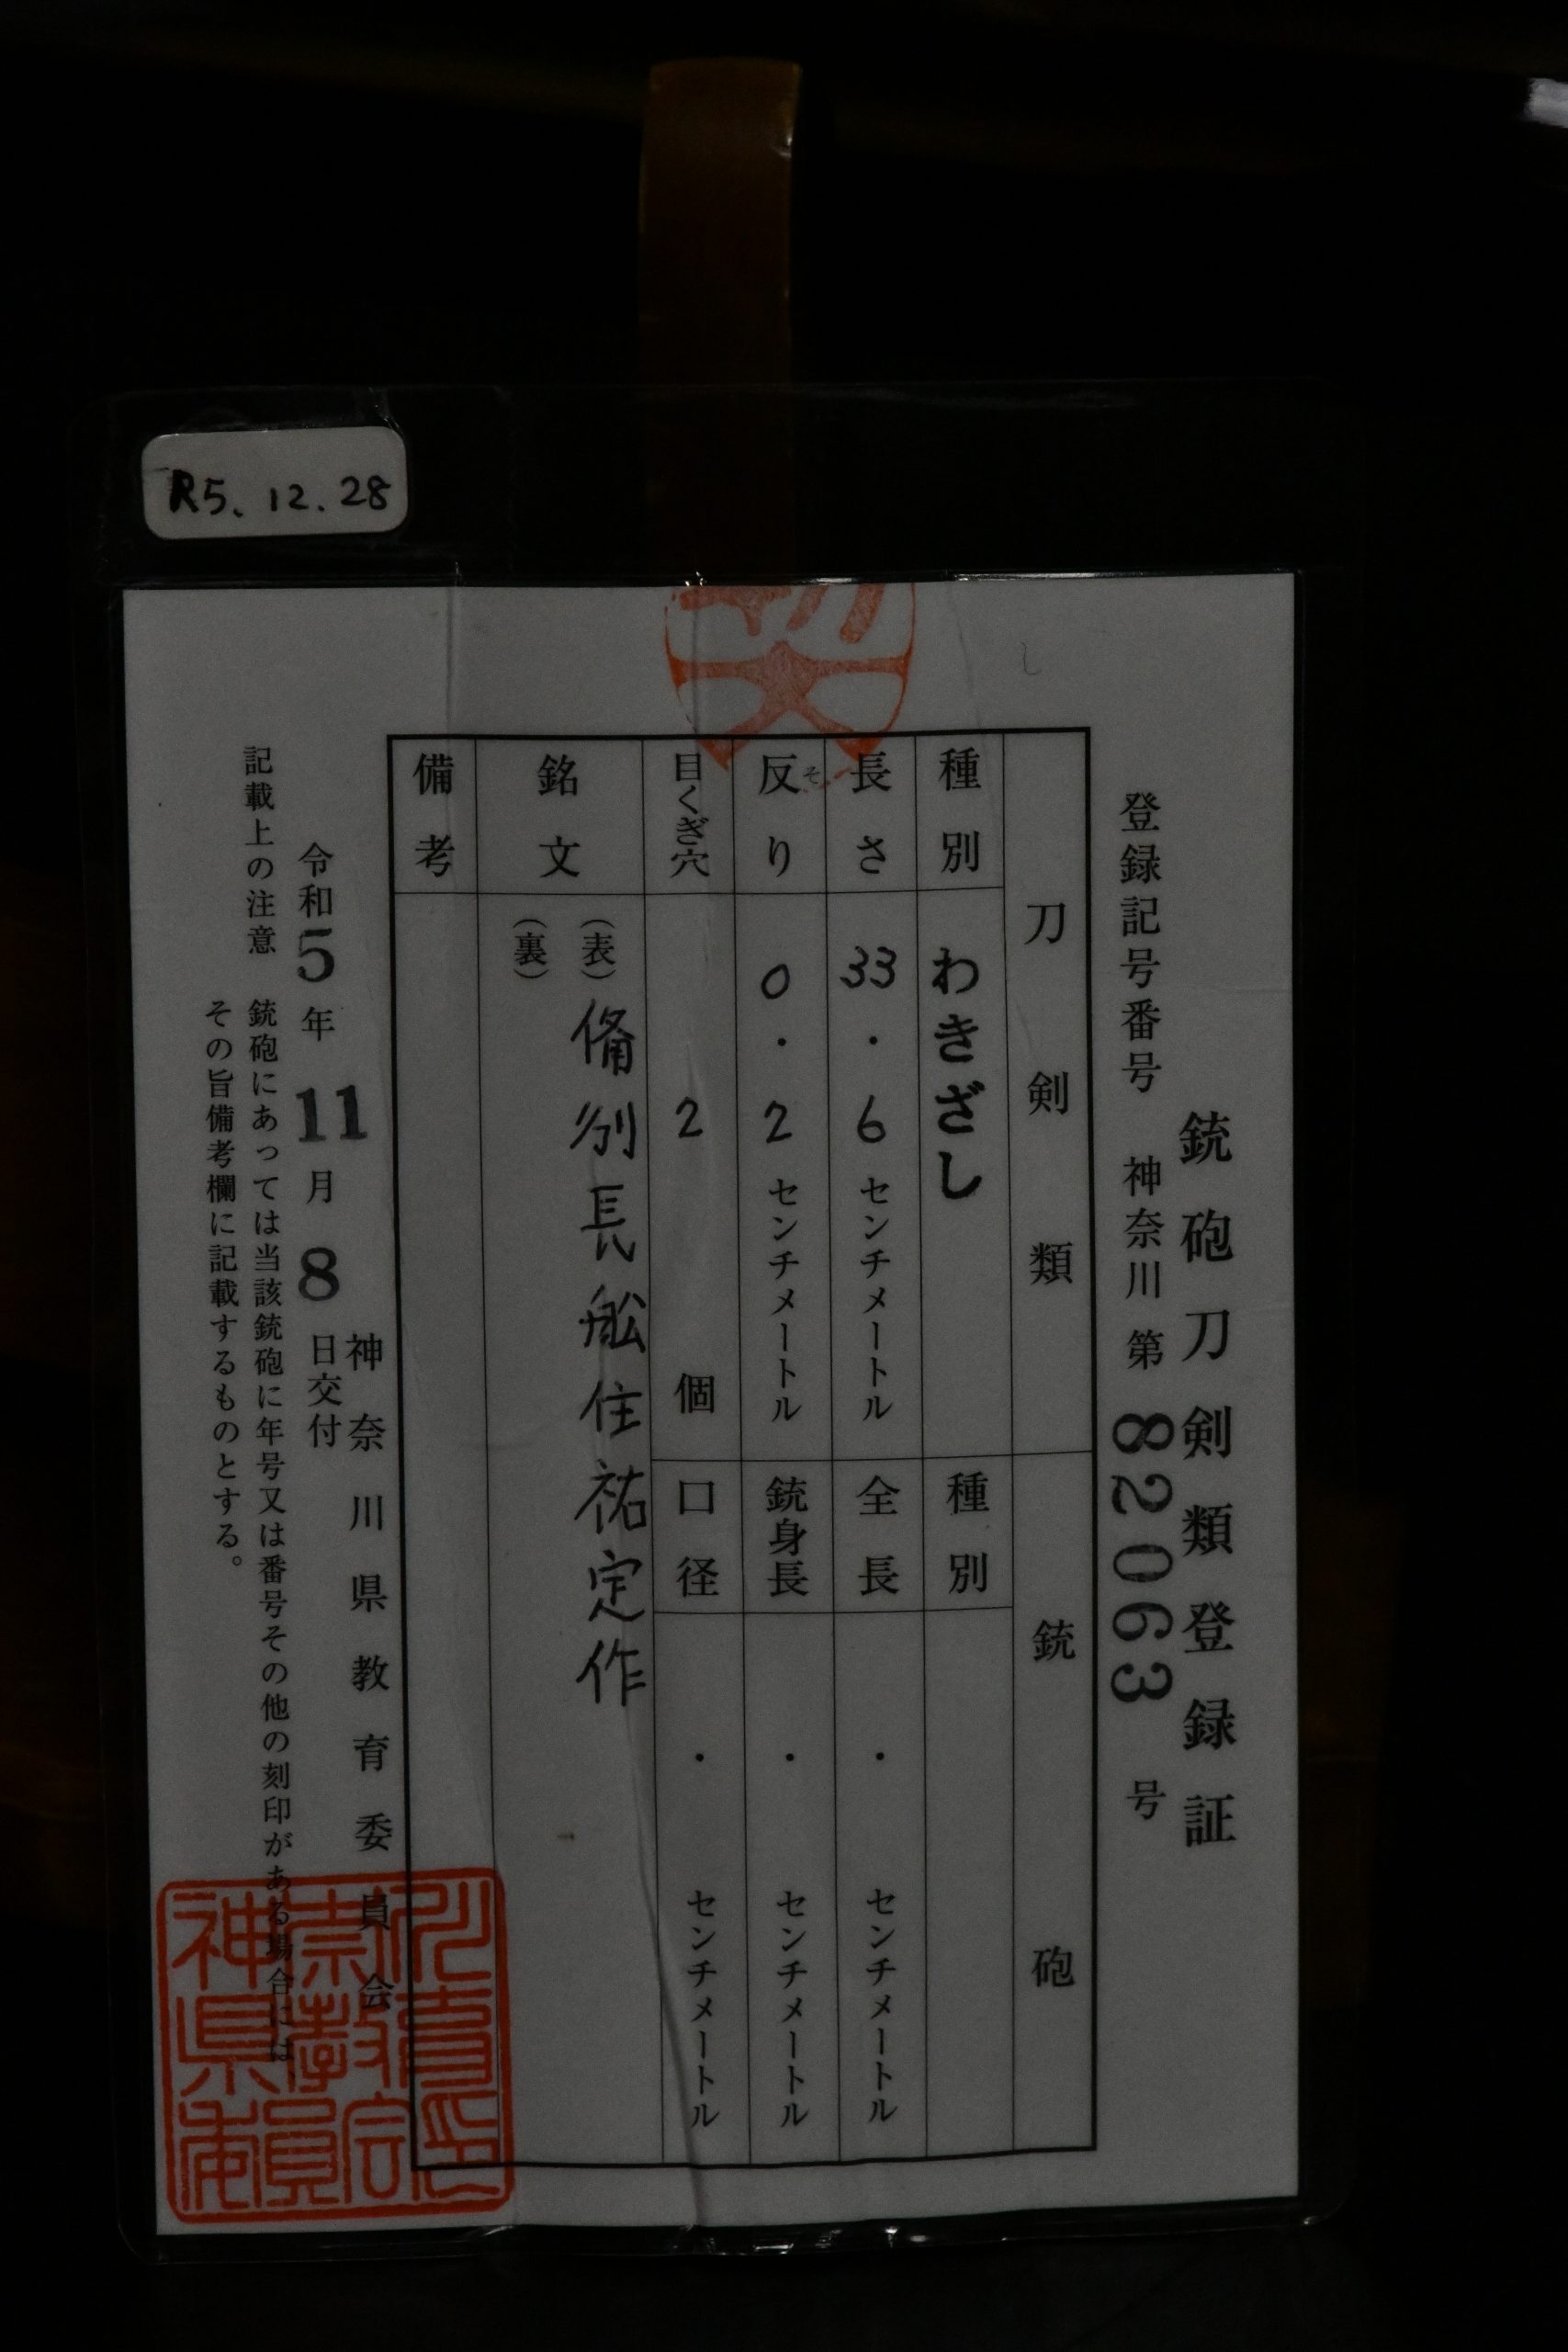 R5.12.28
銃砲刀剣類登録証
登録記号番号 神奈川第82063号
刀剣類 銃砲
種別 わきざし 種別
長さ 33・6センチメートル 全長 ・センチメートル
反り 0・2センチメートル 銃身長 ・センチメートル
そ
目くぎ穴 2個 口径 ・センチメートル
銘文 (表) 備刕長舩住祐定作
(裏)
備考
神奈川県教育委員会
令和5年11月8日交付
記載上の注意 銃砲にあつては当該銃砲に年号又は番号その他の刻印がある場合には
その旨備考欄に記載するものとする。
神奈川県教育委員会印